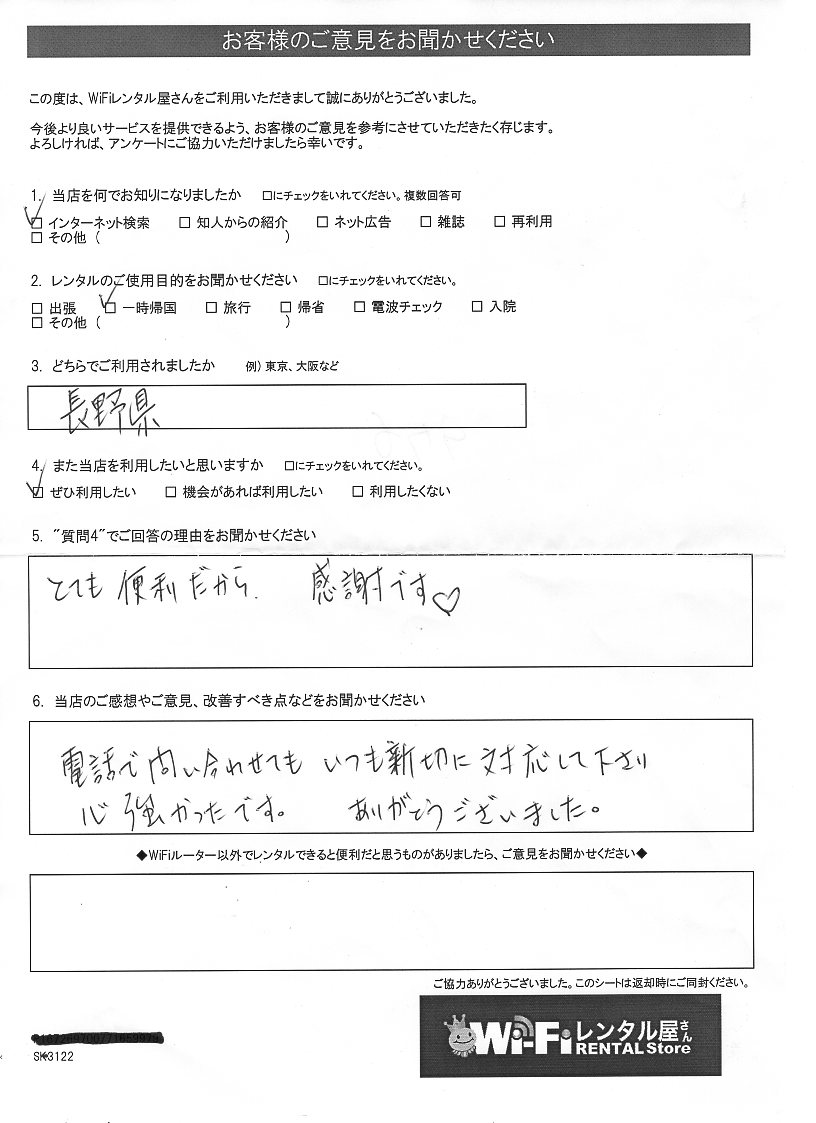 お客様のご意見をお聞かせください
この度は、WiFiレンタル屋さんをご利用いただきまして誠にありがとうございました。
今後より良いサービスを提供できるよう、お客様のご意見を参考にさせていただきたく存じます。
よろしければ、アンケートにご協力いただけましたら幸いです。
1. 当店を何でお知りになりましたか □にチェックをいれてください。複数回答可
☑ インターネット検索 □ 知人からの紹介 □ ネット広告 □ 雑誌 □ 再利用
□ その他 ( )
2. レンタルのご使用目的をお聞かせください □にチェックをいれてください。
□ 出張 ☑ 一時帰国 □ 旅行 □ 帰省 □ 電波チェック □ 入院
□ その他 ( )
3. どちらでご利用されましたか 例) 東京、大阪など
長野県
4. また当店を利用したいと思いますか □にチェックをいれてください。
☑ ぜひ利用したい □ 機会があれば利用したい □ 利用したくない
5. "質問4"でご回答の理由をお聞かせください
とても便利だから. 感謝です♡
6. 当店のご感想やご意見、改善すべき点などをお聞かせください
電話で問い合わせても いつも新切に対応して下さり
心強かったです。 ありがとうございました。
◆WiFiルーター以外でレンタルできると便利だと思うものがありましたら、ご意見をお聞かせください◆
ご協力ありがとうございました。このシートは返却時にご同封ください。
Wi-Fiレンタル屋さん
RENTAL Store
SK3122